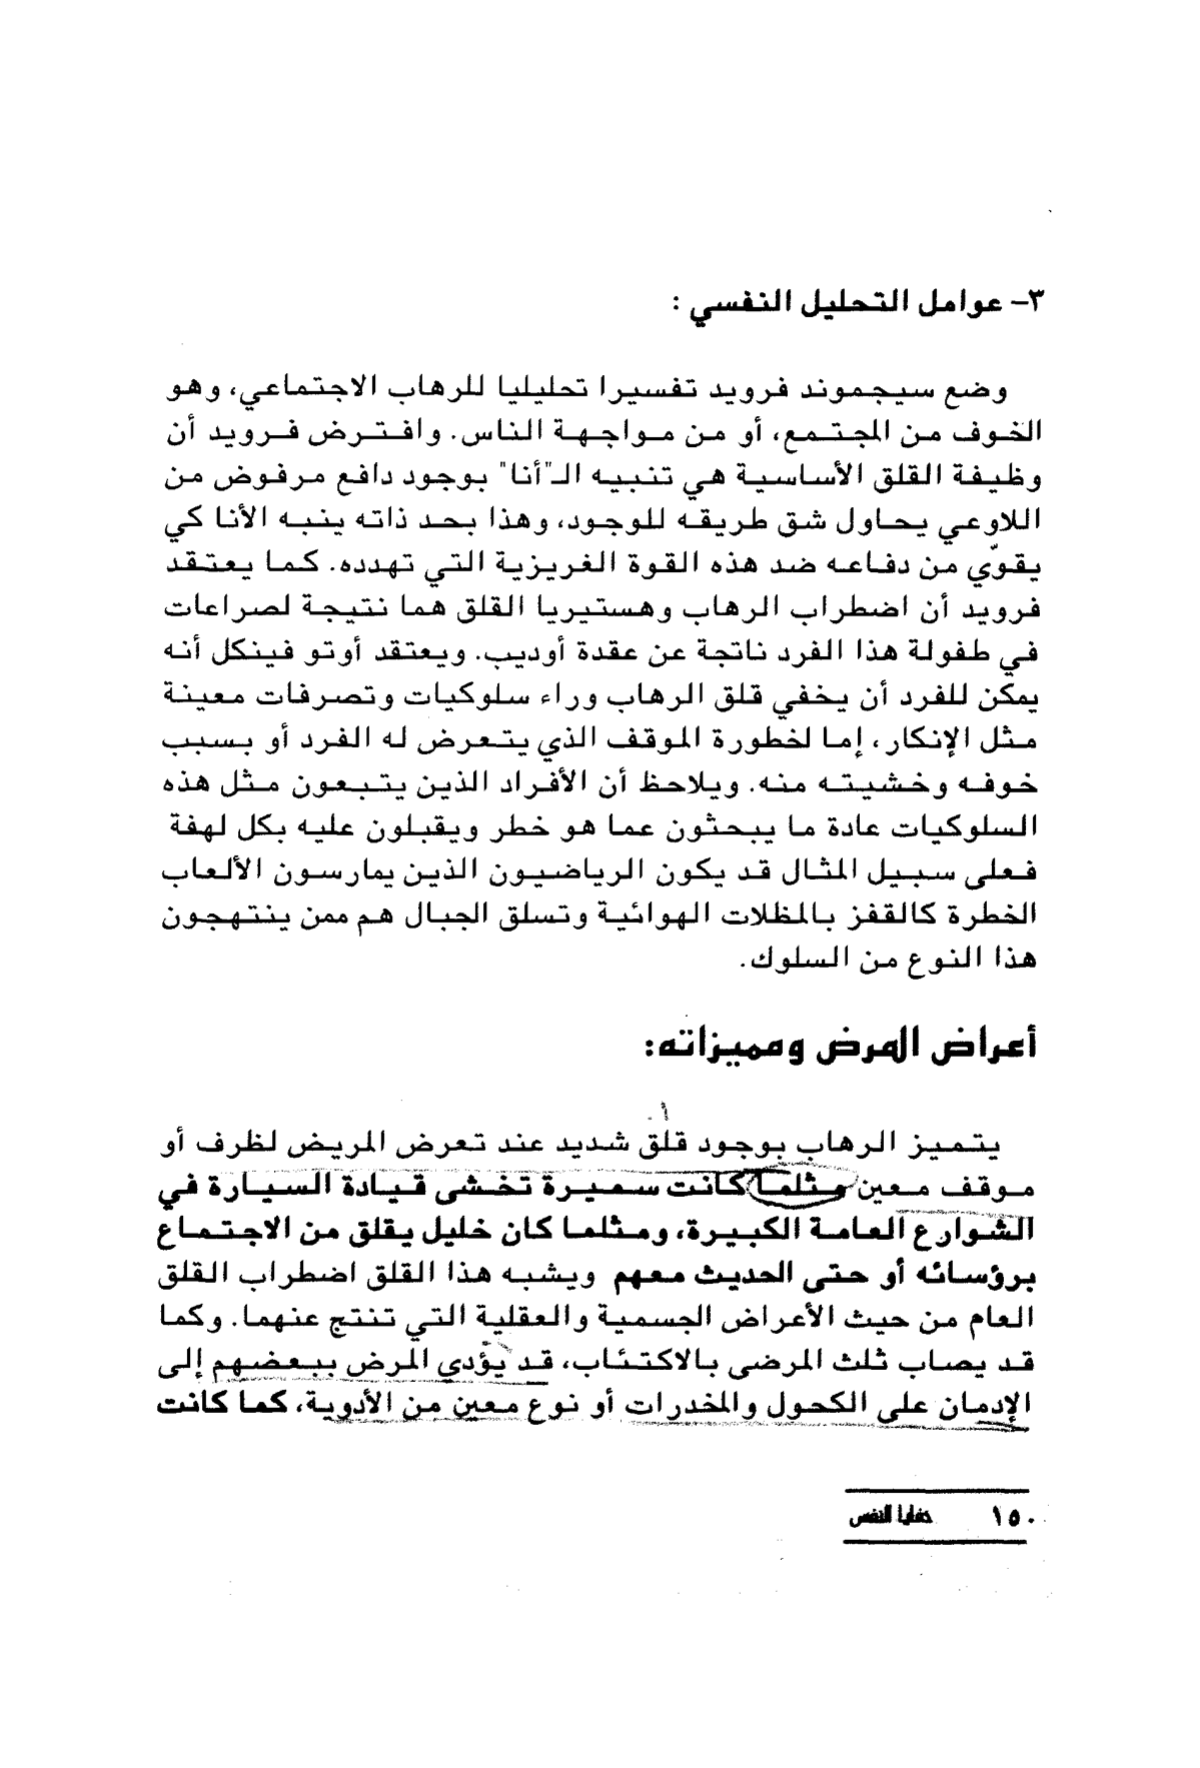 ٣- عوامل التحليل النفسي :
وضع سيجموند فرويد تفسيرا تحليليا للرهاب الاجتماعي، وهو
الخوف من المجتمع، أو من مواجهة الناس. وافترض فرويد أن
وظيفة القلق الأساسية هي تنبيه الـ"أنا" بوجود دافع مرفوض من
اللاوعي يحاول شق طريقه للوجود، وهذا بحد ذاته ينبه الأنا كي
يقوّي من دفاعه ضد هذه القوة الغريزية التي تهدده. كما يعتقد
فرويد أن اضطراب الرهاب وهستيريا القلق هما نتيجة لصراعات
في طفولة هذا الفرد ناتجة عن عقدة أوديب. ويعتقد أوتو فينكل أنه
يمكن للفرد أن يخفي قلق الرهاب وراء سلوكيات وتصرفات معينة
مثل الإنكار، إما لخطورة الموقف الذي يتعرض له الفرد أو بسبب
خوفه وخشيته منه. ويلاحظ أن الأفراد الذين يتبعون مثل هذه
السلوكيات عادة ما يبحثون عما هو خطر ويقبلون عليه بكل لهفة
فعلى سبيل المثال قد يكون الرياضيون الذين يمارسون الألعاب
الخطرة كالقفز بالمظلات الهوائية وتسلق الجبال هم ممن ينتهجون
هذا النوع من السلوك.
أعراض المرض ومميزاته:
يتميز الرهاب بوجود قلق شديد عند تعرض المريض لظرف أو
موقف معين مثلما كانت سميرة تخشى قيادة السيارة في
الشوارع العامة الكبيرة، ومثلما كان خليل يقلق من الاجتماع
برؤسائه أو حتى الحديث معهم ويشبه هذا القلق اضطراب القلق
العام من حيث الأعراض الجسمية والعقلية التي تنتج عنهما. وكما
قد يصاب ثلث المرضى بالاكتئاب، قد يؤدي المرض ببعضهم إلى
الإدمان على الكحول والمخدرات أو نوع معين من الأدوية، كما كانت
١٥٠ خفايا النفس